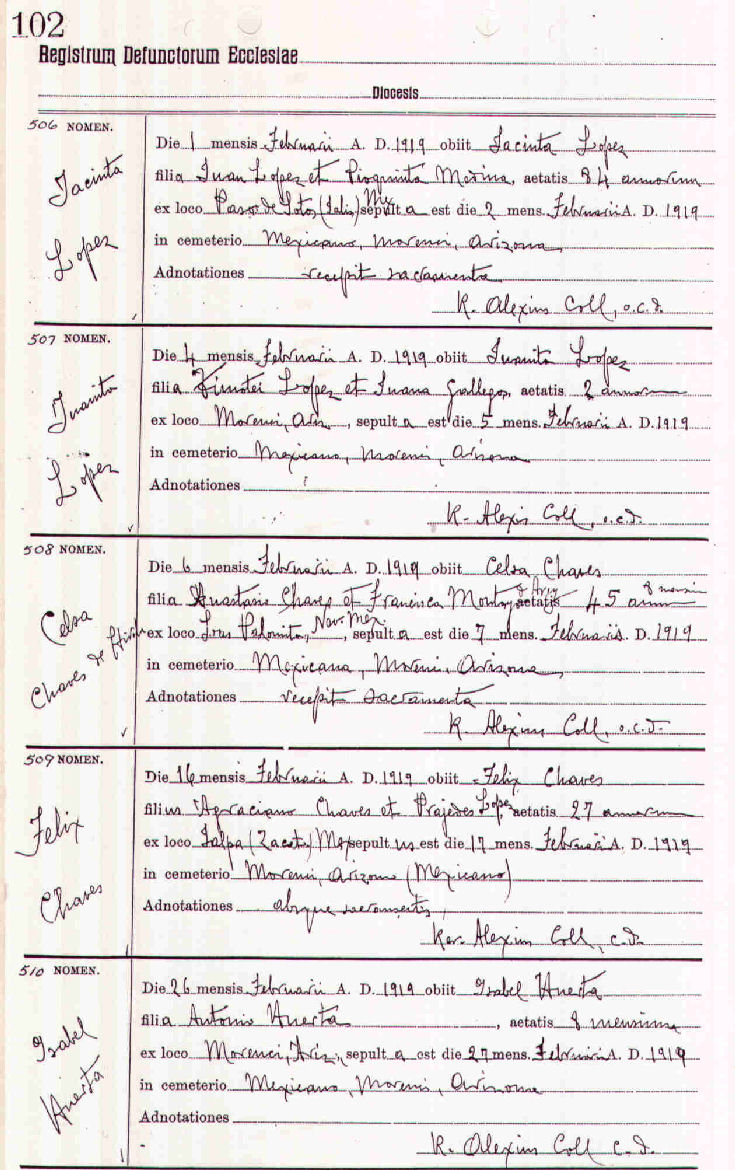 102
Registrum Defunctorum Ecclesiae
Diocesis
506 NOMEN.
Jacinta
Lopez
Die 1 mensis Februarii A. D. 1919 obiit Jacinta Lopez
filia Juan Lopez et Medina, aetatis 84 annorum
ex loco Paso de Sotos (Jalis) Mex sepulta est die 2 mens. Februarii A. D. 1919
in cemeterio Mexicano, Morenci, Arizona,
Adnotationes recepit sacramenta
R. Alexius Coll, o.c.d.
507 NOMEN.
Juanita
Lopez
Die 4 mensis Februarii A. D. 1919 obiit Juanita Lopez
filia Timotei Lopez et Juana Gallego, aetatis 2 annorum
ex loco Morenci, Ariz, sepulta est die 5 mens. Februarii A. D. 1919
in cemeterio Mexicano, Morenci, Arizona
Adnotationes
R. Alexis Coll, o.c.d.
508 NOMEN.
Celsa
Chaves de
Die 6 mensis Februarii A. D. 1919 obiit Celsa Chaves
filia Anastasio Chaves et Francisca aetatis 45 ann 8 mensium
ex loco Palomito, New Mex, sepulta est die 7 mens. Februarii A. D. 1919
in cemeterio Mexicana, Morenci, Arizona,
Adnotationes recepit sacramenta
R. Alexius Coll, o.c.d.
509 NOMEN.
Felix
Chaves
Die 16 mensis Februarii A. D. 1919 obiit Felix Chaves
filius Chaves et Prajedes Lopez, aetatis 27 annorum
ex loco Jalpa (Zacats) Mex sepultus est die 17 mens. Februarii A. D. 1919
in cemeterio Morenci, Arizona (Mexicano)
Adnotationes absque sacramentis,
Rev. Alexius Coll, c.d.
510 NOMEN.
Isabel
Huerta
Die 26 mensis Februarii A. D. 1919 obiit Isabel Huerta
filia Antonio Huerta, aetatis 8 mensium
ex loco Morenci, Ariz, sepulta est die 27 mens. Februarii A. D. 1919
in cemeterio Mexicano, Morenci, Arizona
Adnotationes
R. Alexius Coll c.d.